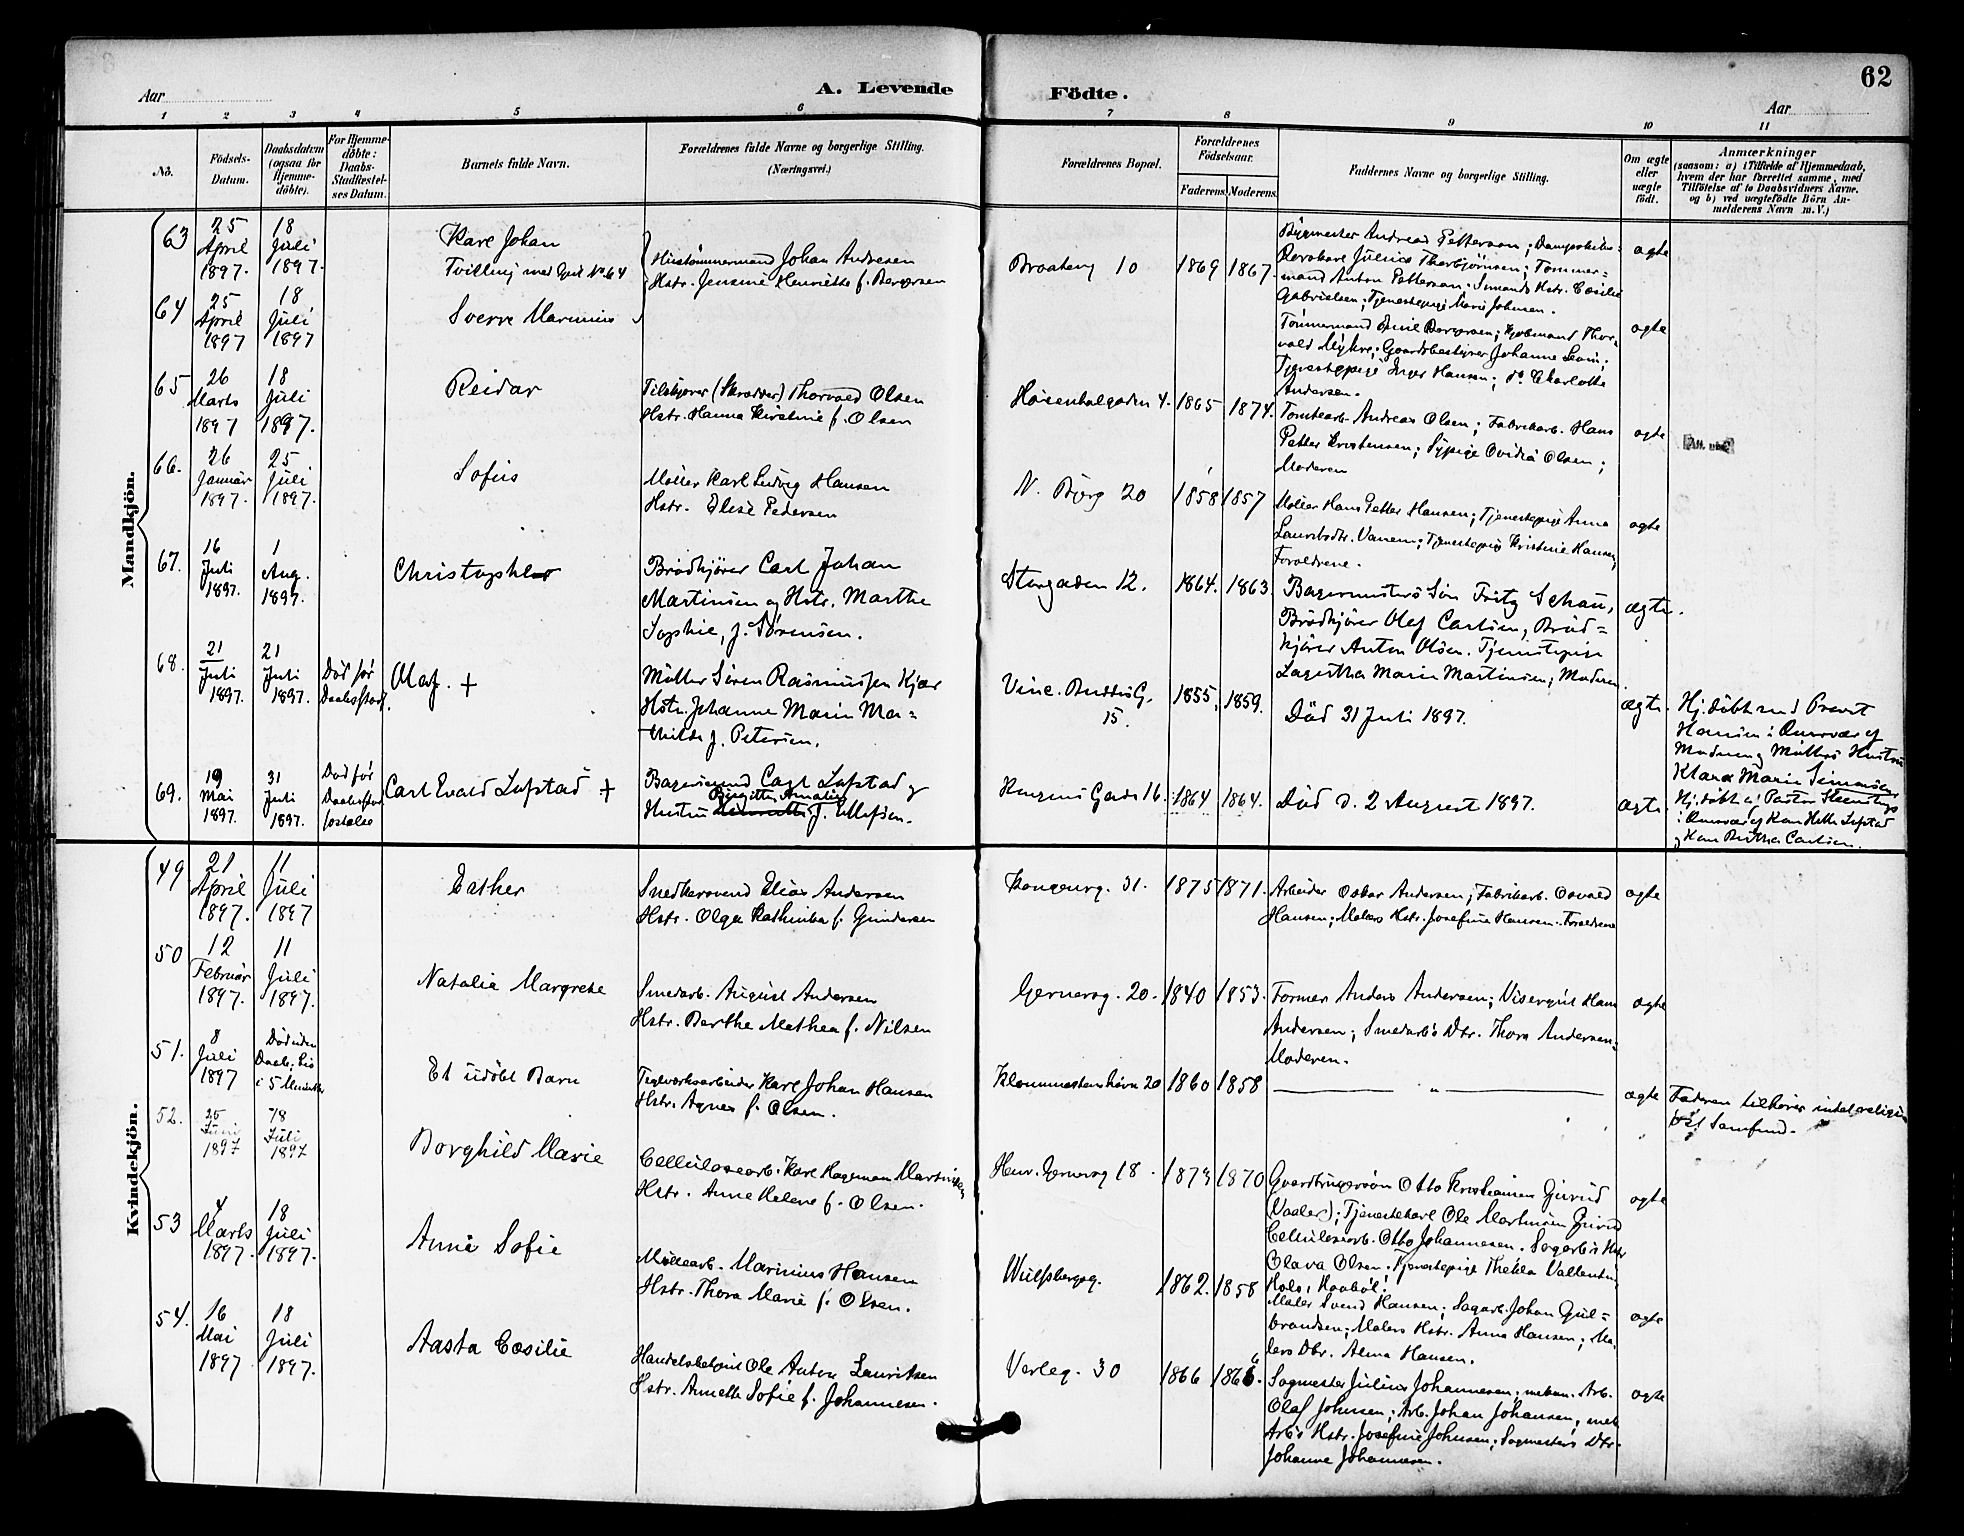 62
Aar
A. Levende Födte.
Aar
1 2 3 4 5 6 7 8 9 10 11
No.
Födsels-Datum.
Daabsdatum (ogsaa for Hjemme-döbte).
For Hjemme-döbte: Daabs-Stadfæstel-ses Datum.
Barnets fulde Navn.
Forældrenes fulde Navne og borgerlige Stilling.
(Næringsvei.)
Forældrenes Bopæl.
Forældrenes Födselsaar.
Faderens. Moderens.
Faddernes Navne og borgerlige Stilling.
Om ægte eller uægte födt.
Anmærkninger
(saasom: a) i Tilfælde af Hjemmedaab,
hvem der har forrettet samme, med
Tilföielse af to Daabsvidners Navne.
og b) ved uægtefödte Börn An-
melderens Navn m.V.)
Mandkjön.
63
25 April 1897.
18 Juli 1897.
Karl Johan
Tvilling med Gut No 64
Hustømmermand Johan Andresen
Hstr. Jensine Henriette f. Borgersen
Braaterg 10
1869 1867.
Bygmester Andreas Pettersen;
Julius Thorbjørnsen; Tømmer-
mand Anton Pettersen. Sømands Hstr. Cæsilie
Gabrielsen; Tjenestepige Marie Johnsen.
ægte
64
25 April 1897
18 Juli 1897
Sverre Marinius
Tømmermand Emil Borgersen; Kjøbmand Thor-
vald Myhre; Gaardsbestyrer Johanne
Tjenestepige Inger Hansen; do Charlotte
Andersen.
ægte
65
26 Marts 1897
18 Juli 1897.
Reidar
Tilskjærer (Skrædder) Thorvald Olsen
Hstr. Hanna Kirstine f. Olsen
4. 1865 1874.
Tomtearb. Andreas Olsen; Fabrikarb. Hans
Petter Kristensen; Sypige Ovidia Olsen;
Moderen
ægte
Att. udst.
66.
26 Januar 1897.
25 Juli 1897.
Sofus
Møller Karl Ludvig Hansen
Hstr. Elise Pedersen
N. Bjerg 20
1858 1857
Møller Hans Petter Hansen; Tjenestepige Anna
Tjenestepige Kristine Hansen,
Forældrene.
ægte
67.
16 Juli 1897.
1 Aug. 1897.
Christopher
Brødkjører Carl Johan
Martinsen og Hstr. Marthe
Sophie, f. Sørensen.
Storgaden 12.
1864. 1863.
Bagermesters Søn Fritz Schau,
Brødkjører Olaf Carlsen, Brød=
kjører Anton Olsen. Tjenestepige
Lagertha Marie Martinsen, Moderen.
ægte.
68.
21 Juli 1897.
21 Juli 1897.
Død før Daabsstadf.
Olaf. +
Møller Søren Rasmussen Kjær
Hstr. Johanne Marie Ma=
thilde f. Petersen.
Vinc. Buddes G. 15.
1855, 1859.
Død 31 Juli 1897.
ægte.
Hj. døbt af Provst
Hansen i Overvær af
Moderen og Møllers Hustru
Klara Marie Simensen
69.
19 Mai 1897.
31 Juli 1897.
Død før Daabsstadfæstelse
Carl Evald Løfstad +
Bagersvend Carl Løfstad og
Hustru Birgitte Amalie f. Ellefsen.
16.
1864 1864.
Død d. 2 August 1897.
ægte
Hj. døbt af Pastor Steenstrup
i Overvær af Hans Løfstad
og Carlsen.
Kvindekjön.
49
21 April 1897.
11 Juli 1897
Esther
Snedkersvend Elias Andersen
Hstr. Olga Kathinka f. Gundersen
Kongensg. 31.
1875 1871.
Arbeider Oskar Andersen; Fabrikarb. Osvald
Hansen; Malers Hstr. Josefine Hansen. Forældrene
ægte
50
12 Februar 1897.
11 Juli 1897.
Natalie Margrete
Smedarb. August Andersen
Hstr. Berthe Mathea f. Nilsen
Gernersg. 20.
1840 1853.
Former Anders Andersen; Visergut Hans
Andersen; Smedarbs Dtr. Thora Andersen;
Moderen.
ægte
51.
8 Juli 1897
Død uden Daab; i 5 Minutter
Et udøbt Barn
Teglverksarbeider Karl Johan Hansen
Hstr. Agnes f. Olsen.
20
1860 1858
"
ægte
Faderen tilhører intet religi-
øst Samfund.
52.
25 Juni 1897
18 Juli 1897
Borghild Marie
Cellulosearb. Karl Hageman Martinsen
Hstr. Anne Helene f. Olsen.
Henr. Gernersg 18.
1870
Gaardbrugersøn Otto Kristiansen Gjirud
(Vaaler); Tjenestekarl Ole Martinsen
Cellulosearb. Otto Johannesen. Sagarb's Hstr
Olava Olsen. Tjenestepige Thekla Vallentin
ægte
53
4 Marts 1897.
18 Juli 1897.
Anna Sofie
Møllearb. Marinius Hansen
Hstr. Thora Marie f. Olsen.
Wulfsbergsg.
1862. 1858
Maler Svend Hansen; Sagarb. Johan Gul=
brandsen; Malers Hstr. Anna Hansen; Ma-
lers Dtr. Alma Hansen.
ægte
54.
16 Mai 1897
18 Juli 1897.
Aasta Cæsilie
Handelsbetjent Ole Anton Lauritsen
Hstr. Annette Sofie f. Johannesen.
Verleg. 30
1866 1866.
Sagmester Julius Johannesen; mekan. Arb.
Olaf Johnsen; Arb. Johan Johansen; mek
Arb's Hstr. Josefine Johnsen; Sagmesters Dtr.
Johanne Johannesen.
ægte